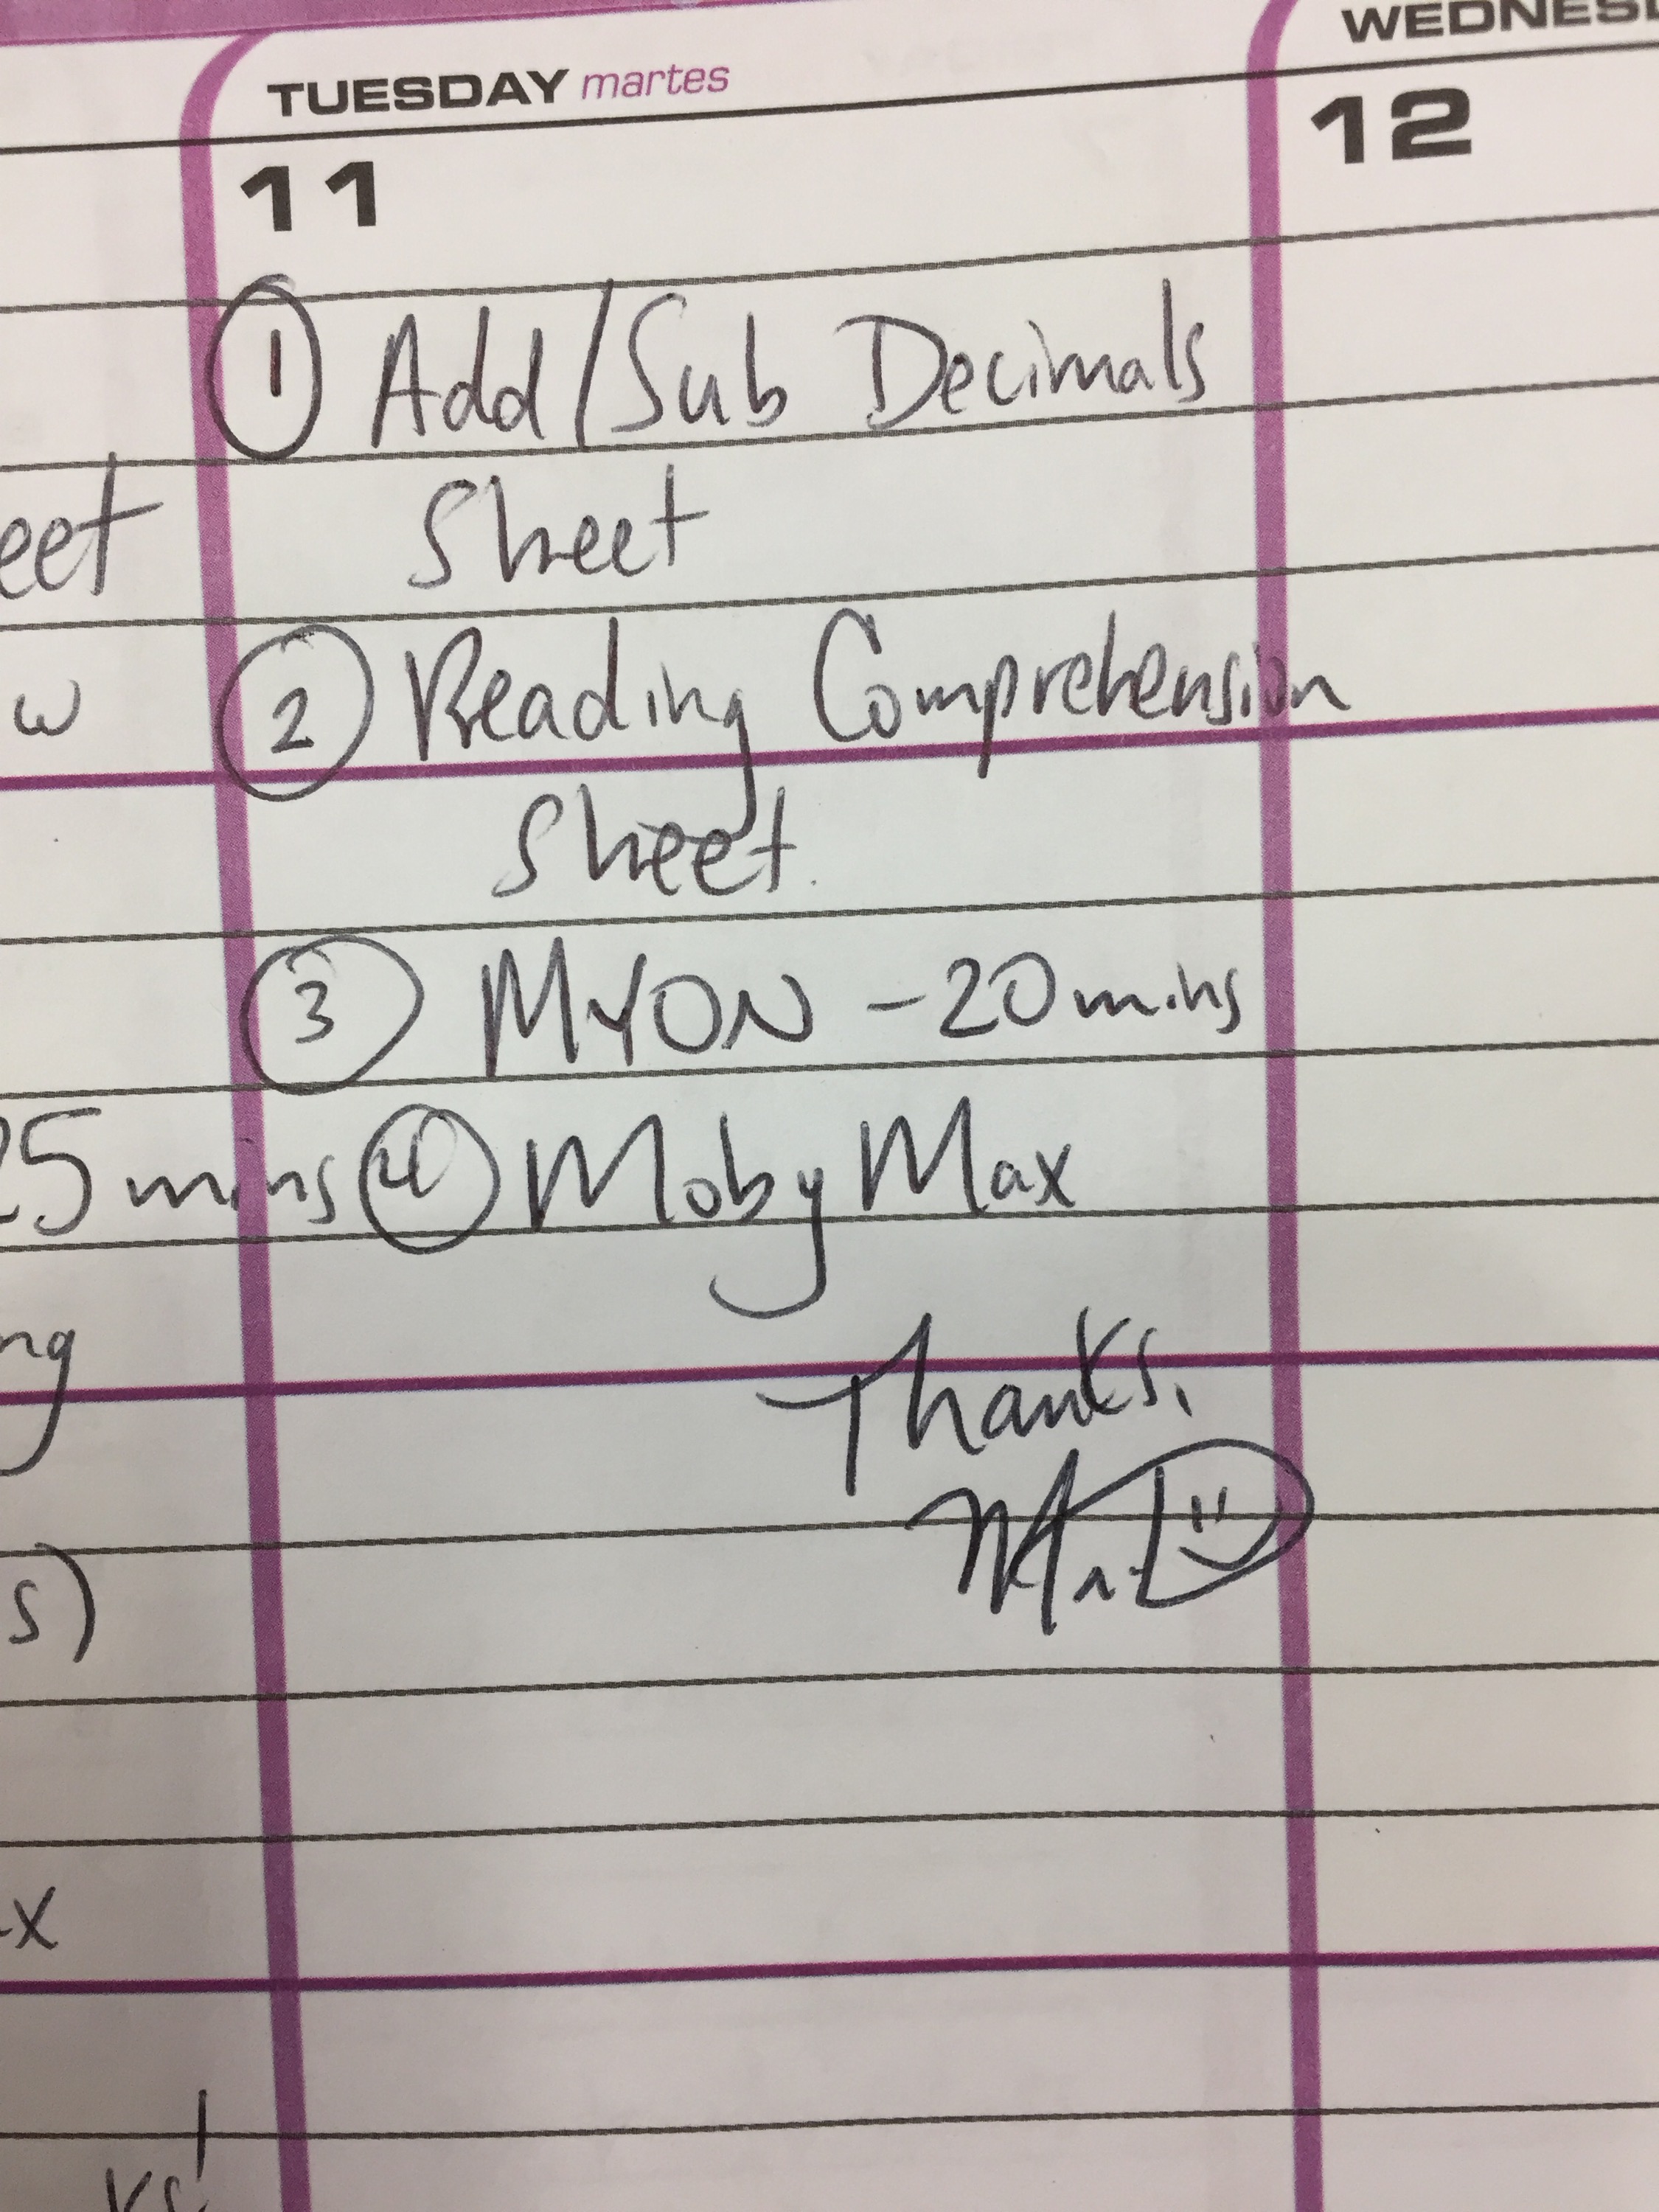 TUESDAY martes
11
① Add/Sub Decimals
Sheet
② Reading Comprehension
Sheet.
③ MYON - 20 mins
④ Moby Max
Thanks,
Mr. D
12
eet
w
25 mins
ng
s)
x
ks!